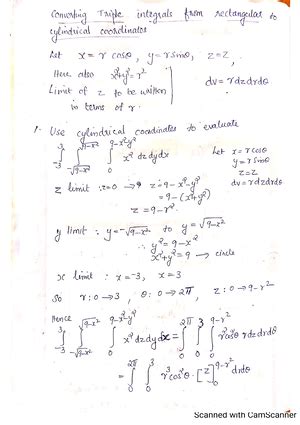 Converting Triple integrals from rectangular to
cylindrical coordinates
Let x = r cosθ, y = r sinθ, z = z,
Here also x²+y² = r²
Limit of z to be written
in terms of r.
dv = r dz dr dθ
1. Use cylindrical coordinates to evaluate
∫_{-3}^{3} ∫_{-√(9-x²)}^{√(9-x²)} ∫_{0}^{9-x²-y²} x² dz dy dx
Let x = r cosθ
y = r sinθ
z = z
dv = r dz dr dθ
z limit : z=0 → z = 9-x²-y²
= 9-(x²+y²)
z = 9-r².
y limit : y = -√(9-x²) to y = √(9-x²)
∴ y² = 9-x²
x²+y² = 9 → circle
x limit : x = -3, x = 3
So r : 0 → 3, θ : 0 → 2π, z : 0 → 9-r²
Hence
∫_{-3}^{3} ∫_{-√(9-x²)}^{√(9-x²)} ∫_{0}^{9-x²-y²} x² dz dy dx = ∫_{0}^{2π} ∫_{0}^{3} ∫_{0}^{9-r²} r² cos²θ r dz dr dθ
= ∫_{0}^{2π} ∫_{0}^{3} r³ cos²θ · [z]_{0}^{9-r²} dr dθ
Scanned with CamScanner